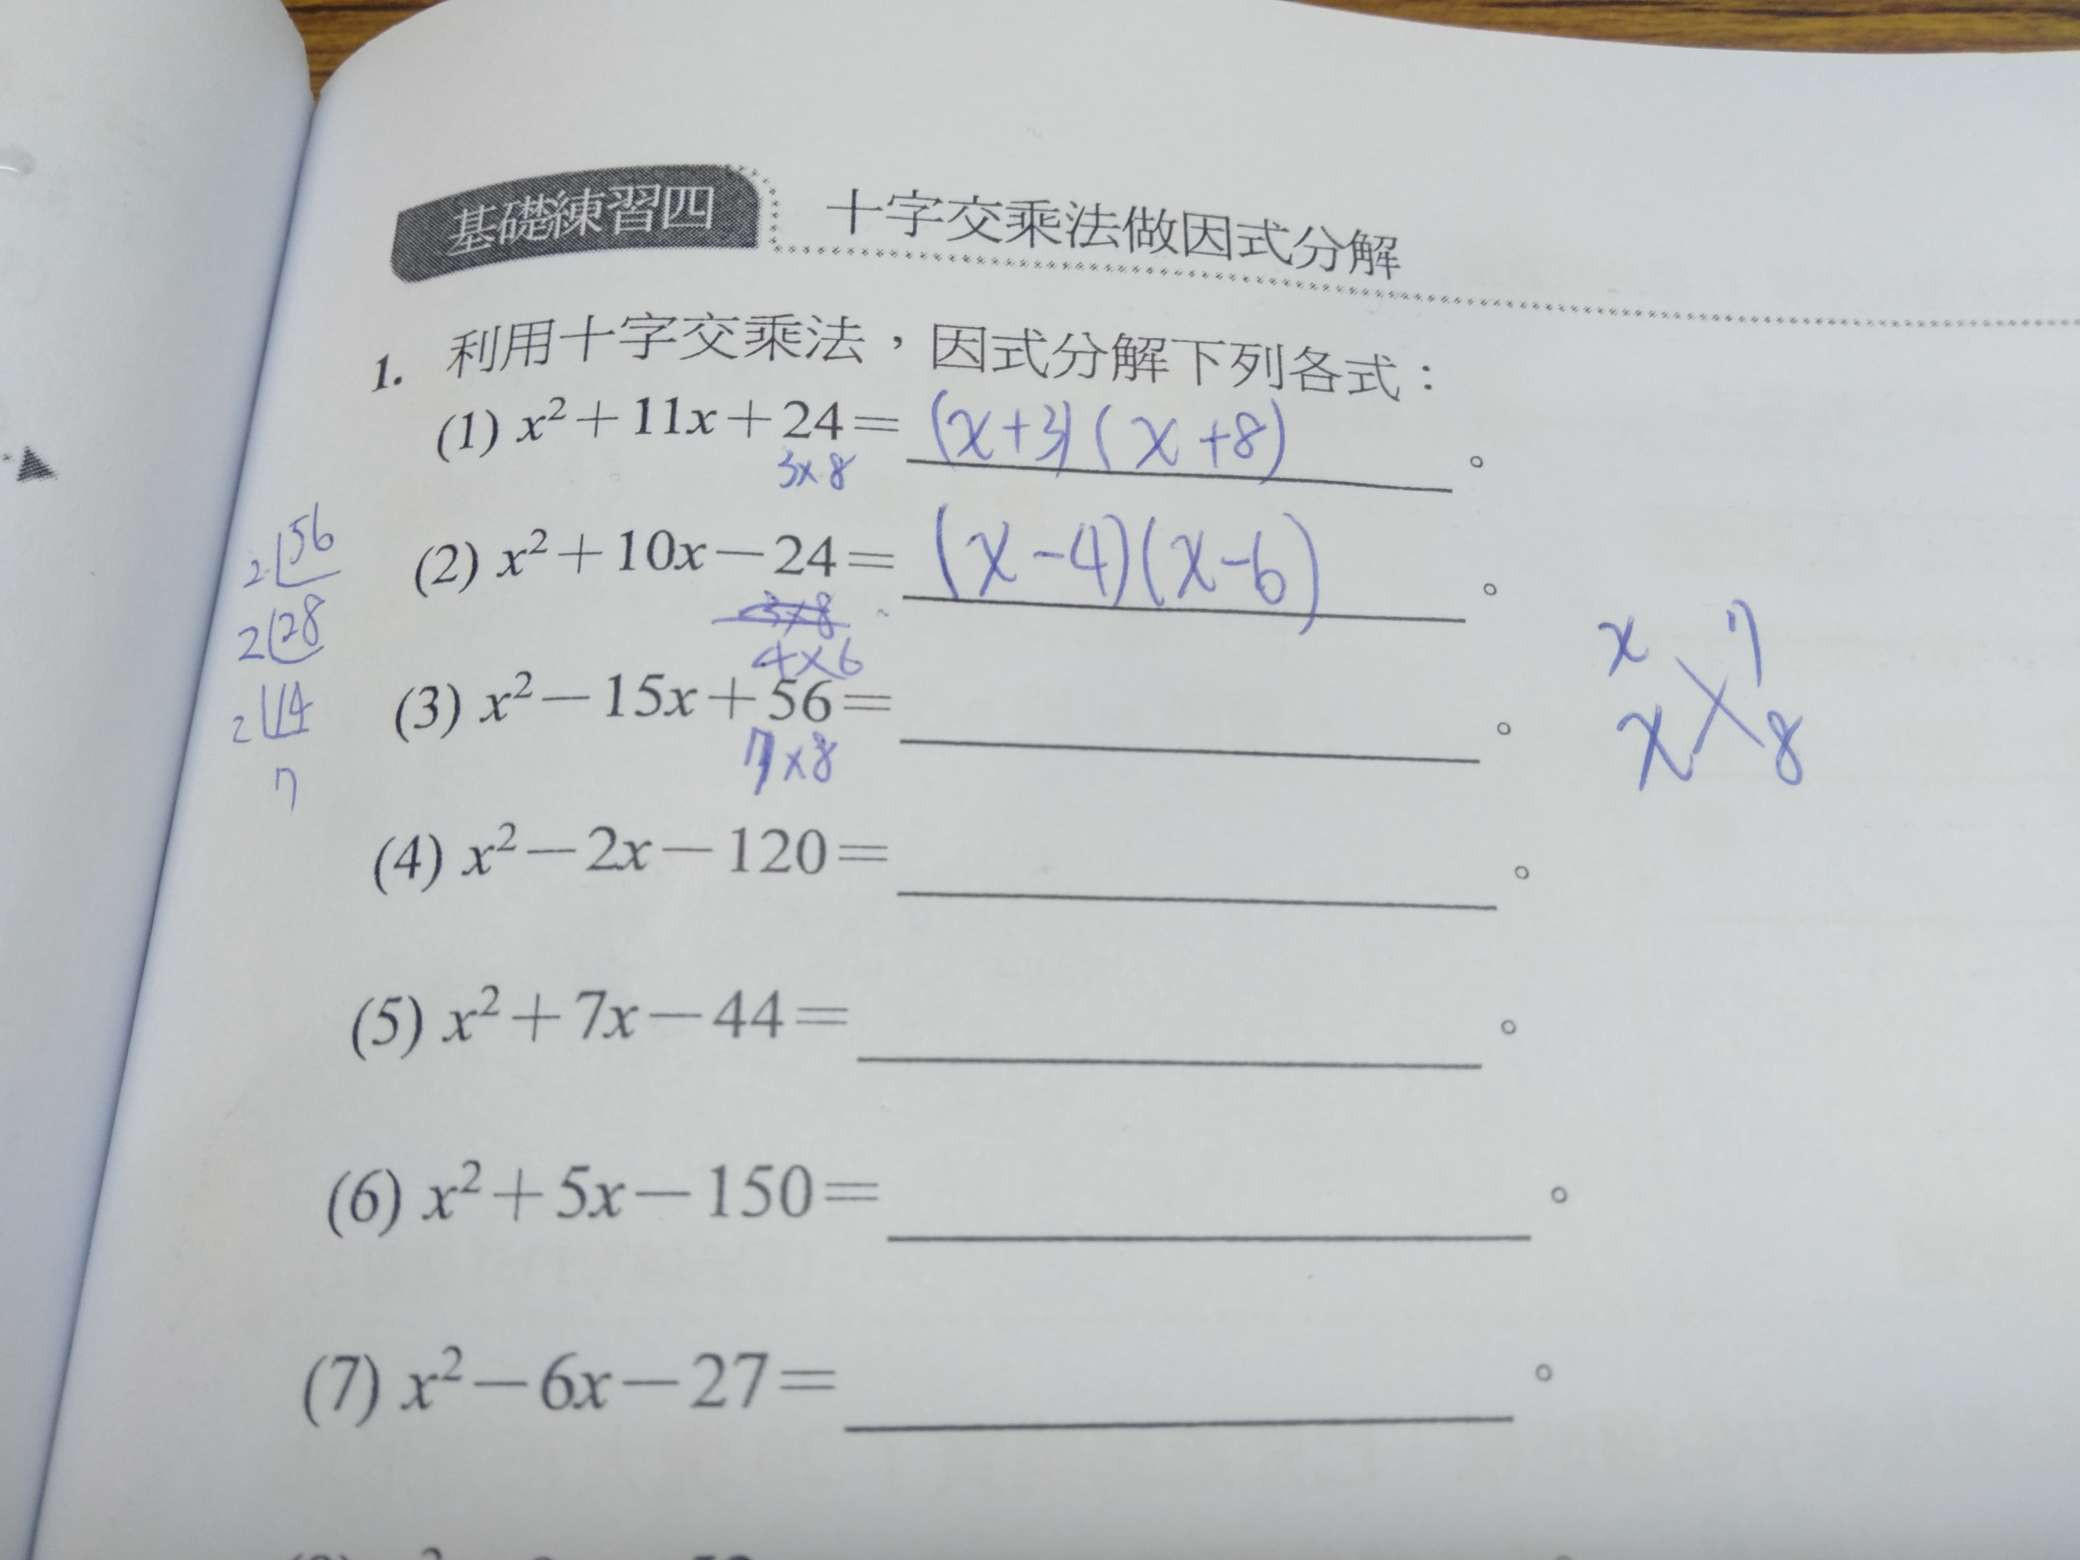 基礎練習四 十字交乘法做因式分解
1. 利用十字交乘法，因式分解下列各式：
(1) x²＋11x＋24＝ (x+3)(x+8) 。
3×8
(2) x²＋10x－24＝ (x-4)(x-6) 。
3×8
4×6
(3) x²－15x＋56＝ 。
7×8
2 56
2 28
2 14
7
x 7
x 8
(4) x²－2x－120＝ 。
(5) x²＋7x－44＝ 。
(6) x²＋5x－150＝ 。
(7) x²－6x－27＝ 。